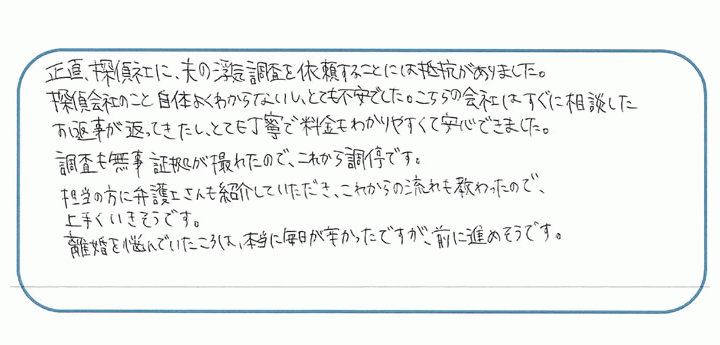 正直、探偵社に、夫の浮気調査を依頼することには抵抗がありました。
探偵会社のこと自体よくわからないし、とても不安でした。こちらの会社はすぐに相談した
お返事が返ってきたし、とても丁寧で料金もわかりやすくて安心できました。
調査も無事証拠が撮れたので、これから調停です。
担当の方に弁護士さんも紹介していただき、これからの流れも教わったので、
上手くいきそうです。
離婚を悩んでいたころは、本当に毎日が辛かったですが、前に進めそうです。